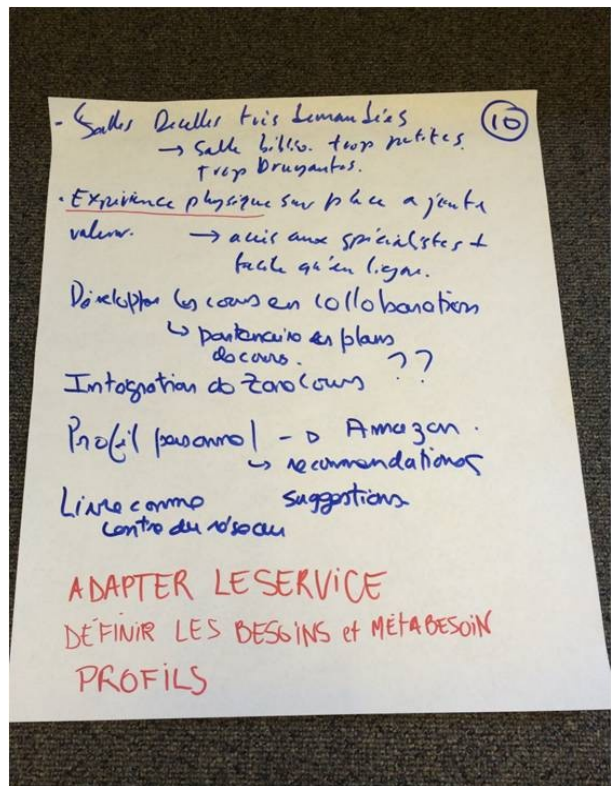 - Salles Decelles très demandées
10
→ Salle biblio. trop petites.
trop bruyantes.
. Expérience physique sur place ajoute
valeur. → accès aux spécialistes +
facile qu'en ligne.
Développer les cours en collaboration
↳ partenaire en plans
de cours. ??
Intégration de ZoneCours
Profil personnel → Amazon.
↳ recommendations
suggestions
Livre comme
centre du réseau
ADAPTER LE SERVICE
DÉFINIR LES BESOINS et MÉTABESOIN
PROFILS